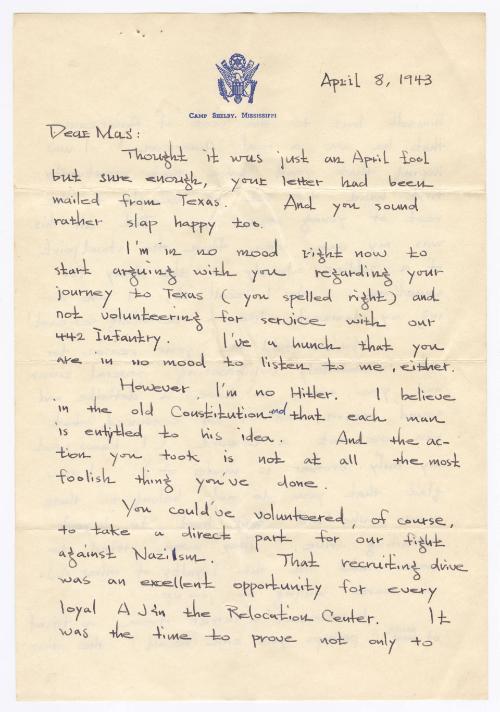 CAMP SHELBY, MISSISSIPPI
April 8, 1943
Dear Mas:
Thought it was just an April fool
but sure enough, your letter had been
mailed from Texas. And you sound
rather slap happy too.
I'm in no mood right now to
start arguing with you regarding your
journey to Texas (you spelled right) and
not volunteering for service with our
442 Infantry. I've a hunch that you
are in no mood to listen to me, either.
However, I'm no Hitler. I believe
in the old Constitution and that each man
is entitled to his idea. And the ac-
tion you took is not at all the most
foolish thing you've done.
You could've volunteered, of course,
to take a direct part for our fight
against Naziism. That recruiting drive
was an excellent opportunity for every
loyal A J in the Relocation Center. It
was the time to prove not only to